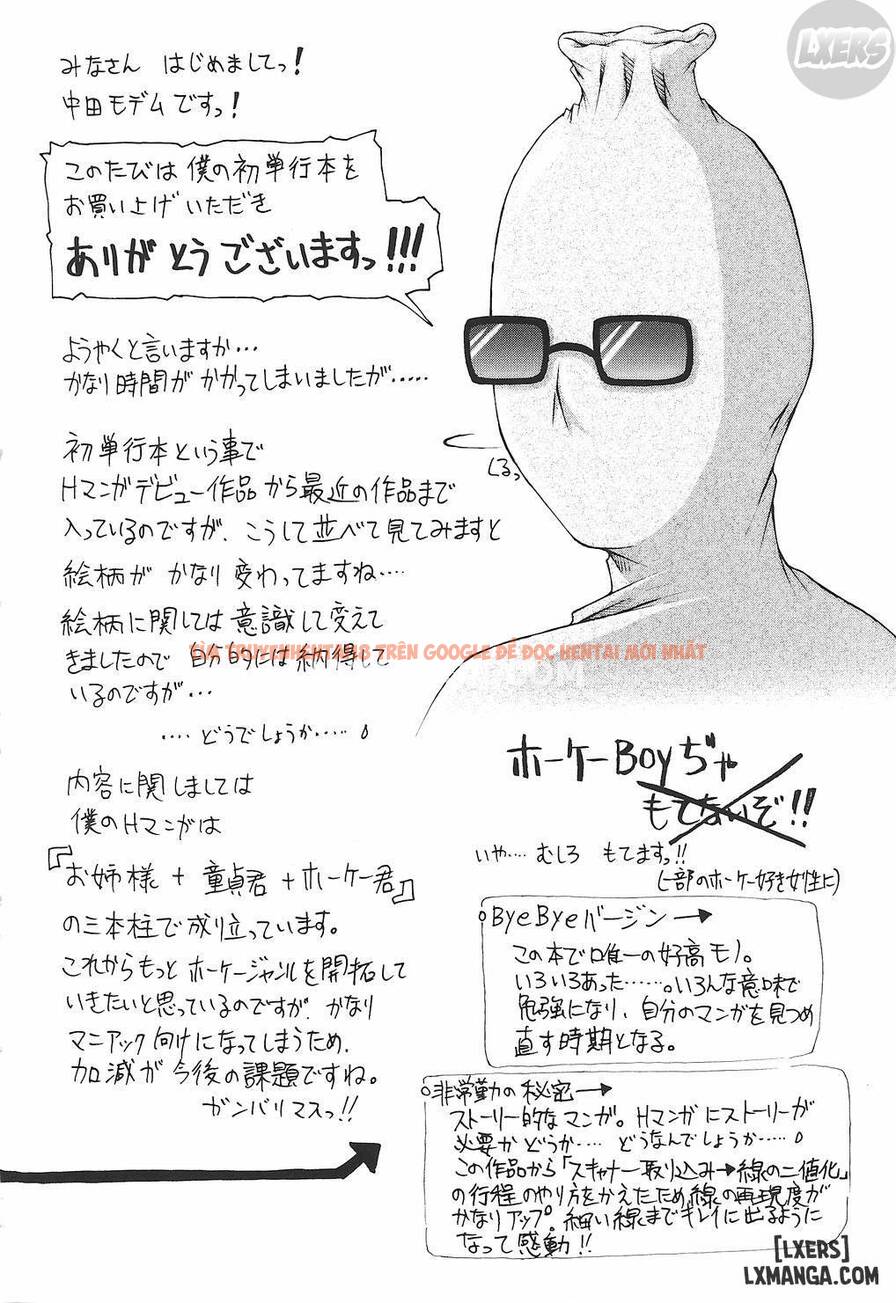 LXERS
みなさん はじめましてっ!
中田モデムですっ!
このたびは僕の初単行本を
お買い上げいただき
ありがとうございますっ!!!
ようやくと言いますか…
かなり時間がかかってしまいましたが……
くるっ
初単行本という事で
Hマンガデビュー作品から最近の作品まで
入っているのですが、こうして並べて見てみますと
絵柄がかなり変わってますね……
絵柄に関しては意識して変えて
きましたので 自分的には納得して
いるのですが…
TRUYENHENTAI18 TRÊN GOOGLE ĐỂ ĐỌC HENTAI MỚI NHẤT
….どうでしょうか……
内容に関しましては
僕のHマンガは
『お姉様+童貞君+ホーケー君』
の三本柱で成り立っています。
これからもっとホーケージャンルを開拓して
いきたいと思っているのですが、かなり
マニアック向けになってしまうため、
加減が今後の課題ですね。
ガンバリマスっ!!
ホーケーBoyぢゃ
もてないぞ!!
いや…. むしろ もてますっ!!
(一部のホーケー好き女性に)
ByeByeバージン→
この本で唯一の好高モノ。
いろいろあった……。いろんな意味で
勉強になり、自分のマンガを見つめ
直す時期となる。
非常勤の秘密→
ストーリー的なマンガ。Hマンガにストーリーが
必要かどうか…. どうなんでしょうか…..
この作品から「スキャナー取り込み→線の二値化」
の行程のやり方をかえたため、線の再現度が
かなりアップ。細い線までキレイに出るように
なって感動!!
[LXERS]
LXMANGA.COM